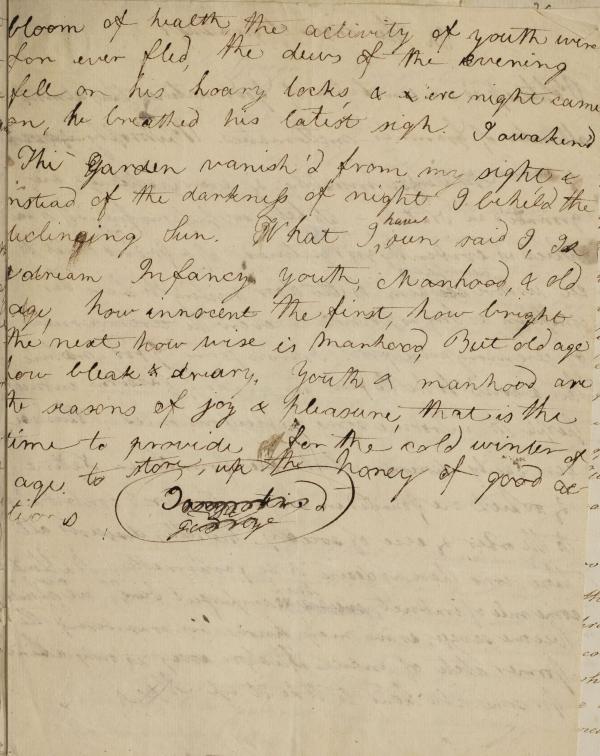 bloom of health the activity of youth were
for ever fled, the dews of the evening
fell on his hoary locks, & ere night came
on, he breathed his latest sigh. I awakend
The Garden vanish'd from my sight &
instead of the darkness of night I beheld the
declinging Sun. What I have seen said I, Is
a dream Infancy youth, Manhood, & old
age, how innocent the first, how bright
the next how wise is Manhood, But old age
how bleak & dreary. Youth & manhood are
the seasons of joy & pleasure, that is the
time to provide for the cold winter of
age. to store up the honey of good ac
tions.